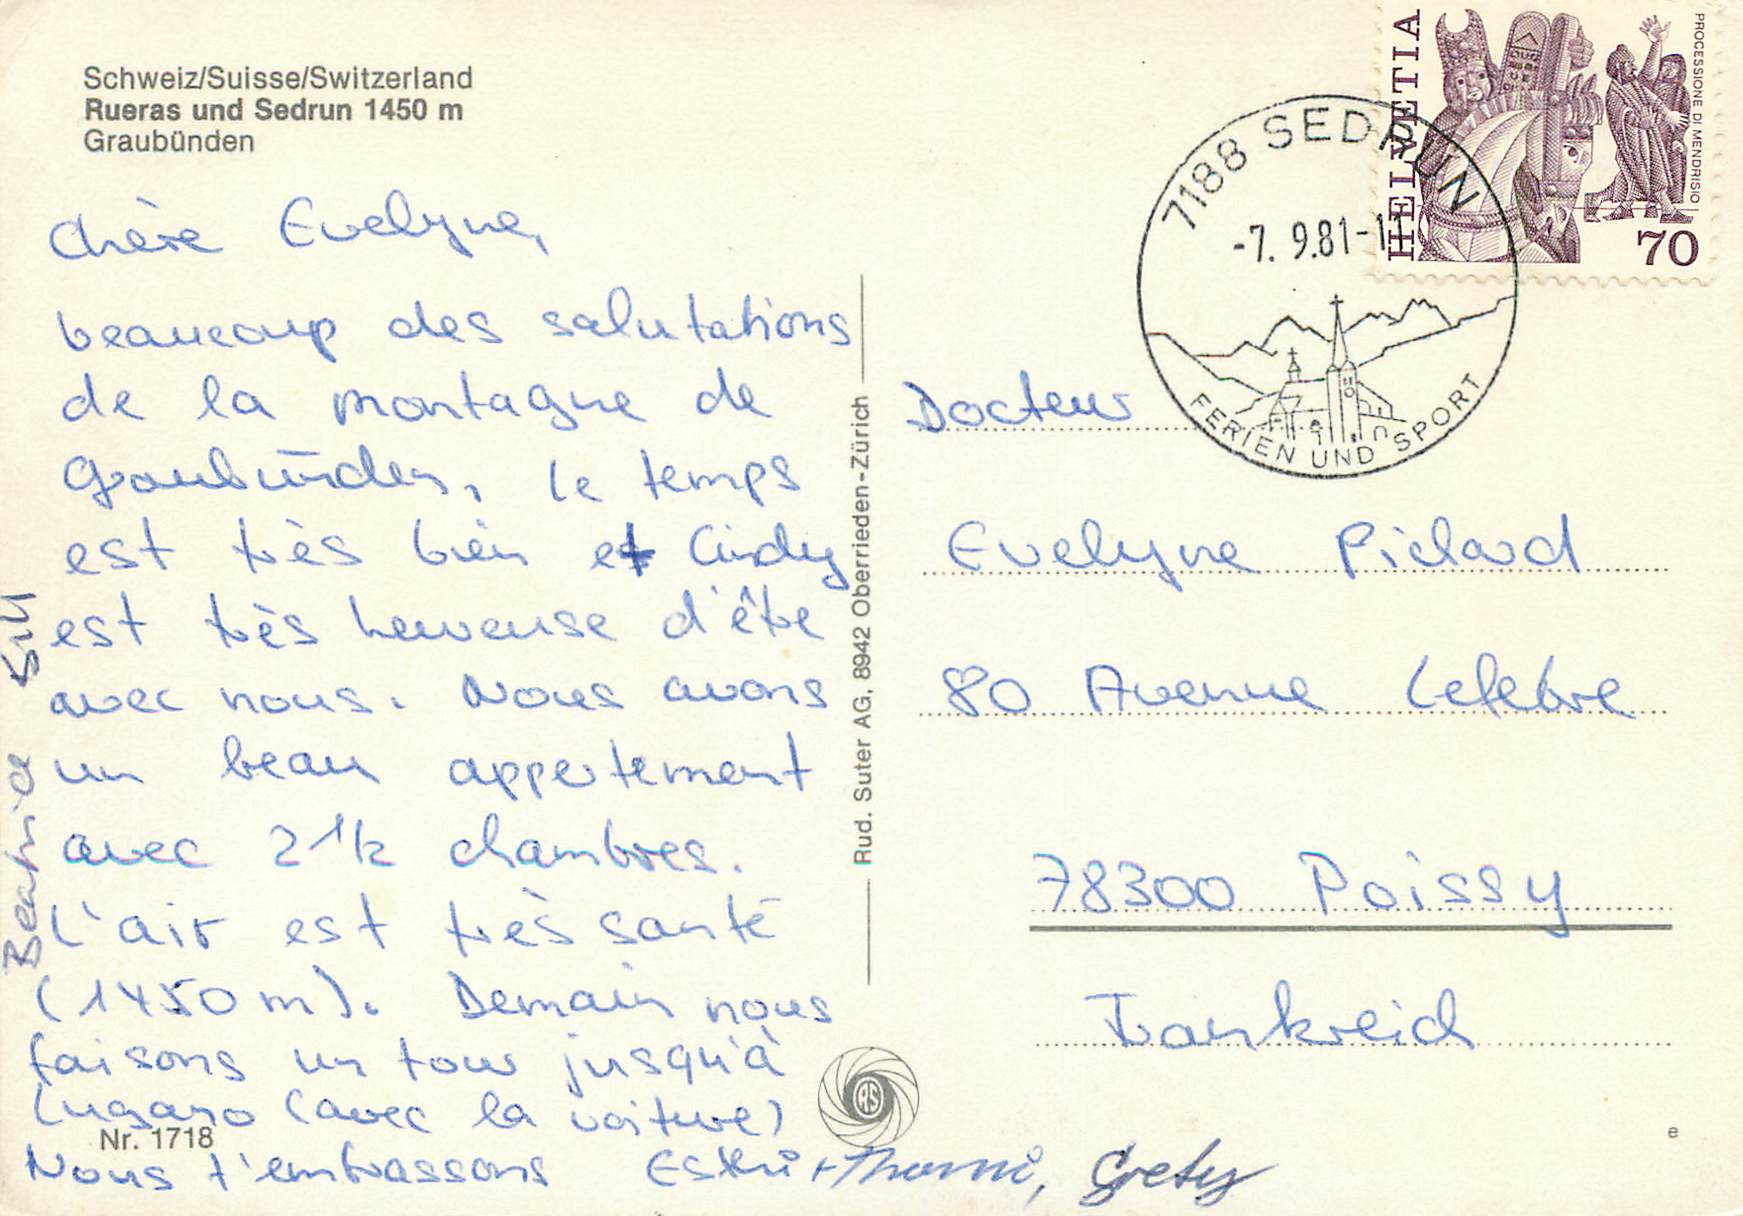 Schweiz/Suisse/Switzerland
Rueras und Sedrun 1450 m
Graubünden
Chère Evelyne,
beaucoup des salutations
de la montagne de
Graubünden, le temps
est très bien et Cindy
est très heureuse d'être
avec nous. Nous avons
un beau appertement
avec 2 1/2 chambres.
L'air est très santé
(1450 m). Demain nous
faisons un tour jusqu'à
Lugano (avec la voiture)
Nr. 1718
Nous t'embrassons Esthi + Thommi, Grety
Beatrice
Rud. Suter AG, 8942 Oberrieden-Zürich
RS
HELVETIA
PROCESSIONE DI MENDRISIO
70
7188 SEDRUN
-7. 9.81-11
FERIEN UND SPORT
Docteur
Evelyne Piclard
80 Avenue Lefebre
78300 Poissy
Frankreich
e